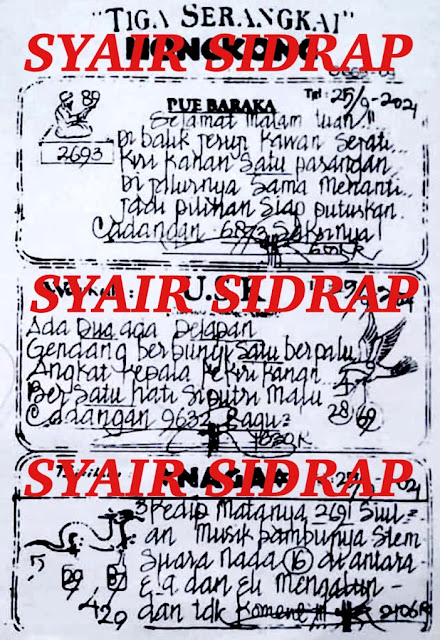 "TIGA SERANGKAI"
SYAIR SIDRAP
HONGKONG
89
2693
PUE BARAKA
Tgl: 25/9-2021
Selamat malam tuan !!
Di balik teruji Kawan Sejati...
Kiri Kanan Satu pasangan
Di jalurnya Sama Menanti
Jadi pilihan Siap putuskan.
Cadangan 6873 Saksinya!
SYAIR SIDRAP
U.S.K
Ada Dua ada Delapan
Gendang berbunyi Satu berpalu
Angkat Kepala Kekiri Kanan
Bersatu hati Siputri Malu
Cadangan 9632 Bagu2
28 69
SYAIR SIDRAP
NAGA
3 Kedip Matanya 2691 Siul2
an Musik Siem
Suara nada 16 di antara
dan Eli
dan tdk Komene !!!
2106K
29
429